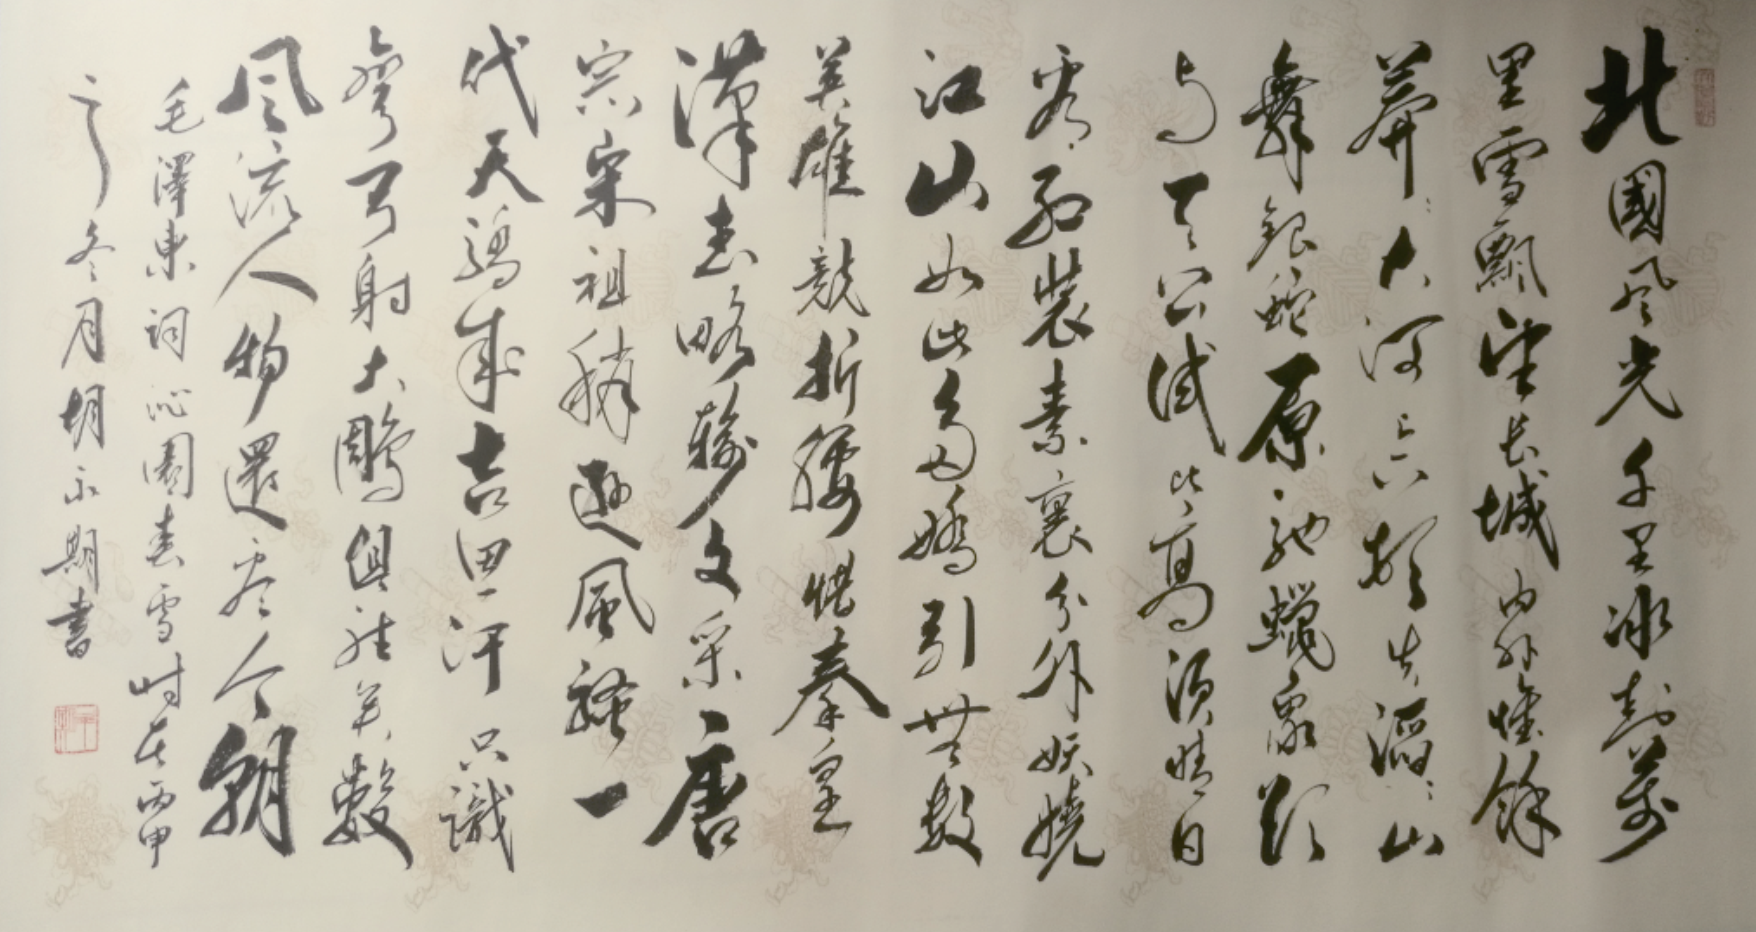 北國风光千里冰封萬
里雪飄望长城内外惟餘
莽々大河上下頓失滔々山
舞銀蛇原馳蠟象欲
与天公試比高須晴日
看红裝素裹分外妖嬈
江山如此多嬌引無数
英雄競折腰惜秦皇
漢武略輸文采唐
宗宋祖稍遜風騷一
代天驕成吉思汗只識
彎弓射大鵰俱往矣數
风流人物還看今朝
毛澤東詞沁園春雪时在丙申
之冬月胡永期書